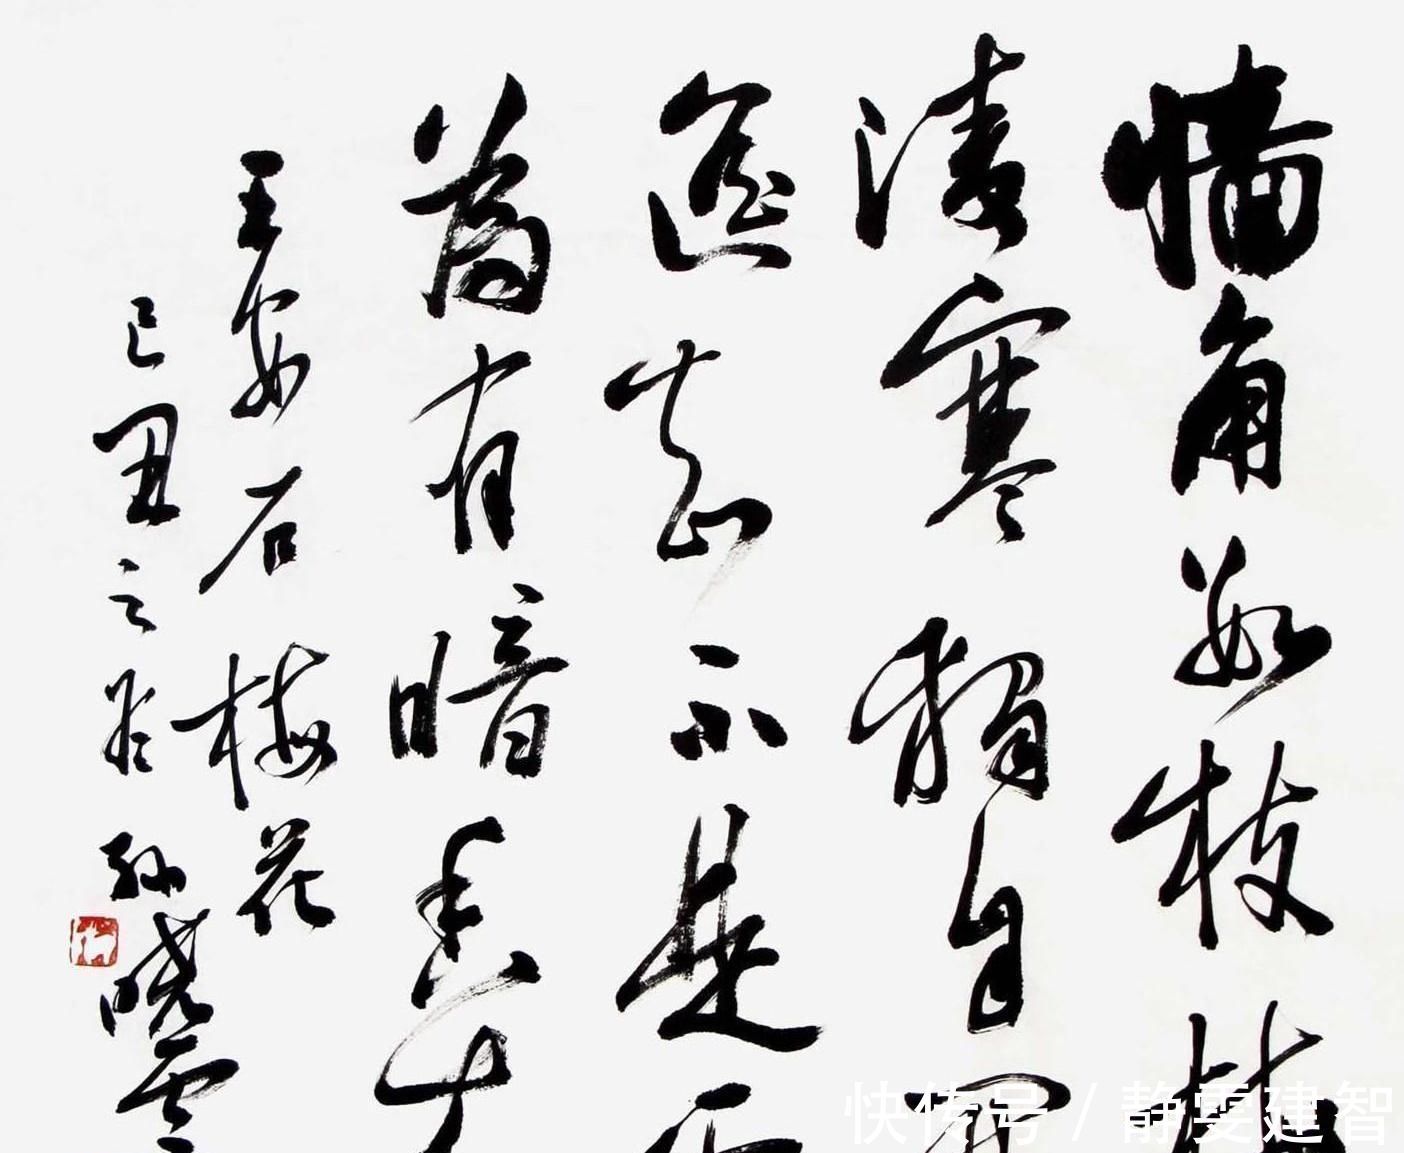 墙角数枝梅
凌寒独自开
遥知不是雪
为有暗香来
王安石梅花
己丑之冬 孙晓云
快传号 / 静雯建智